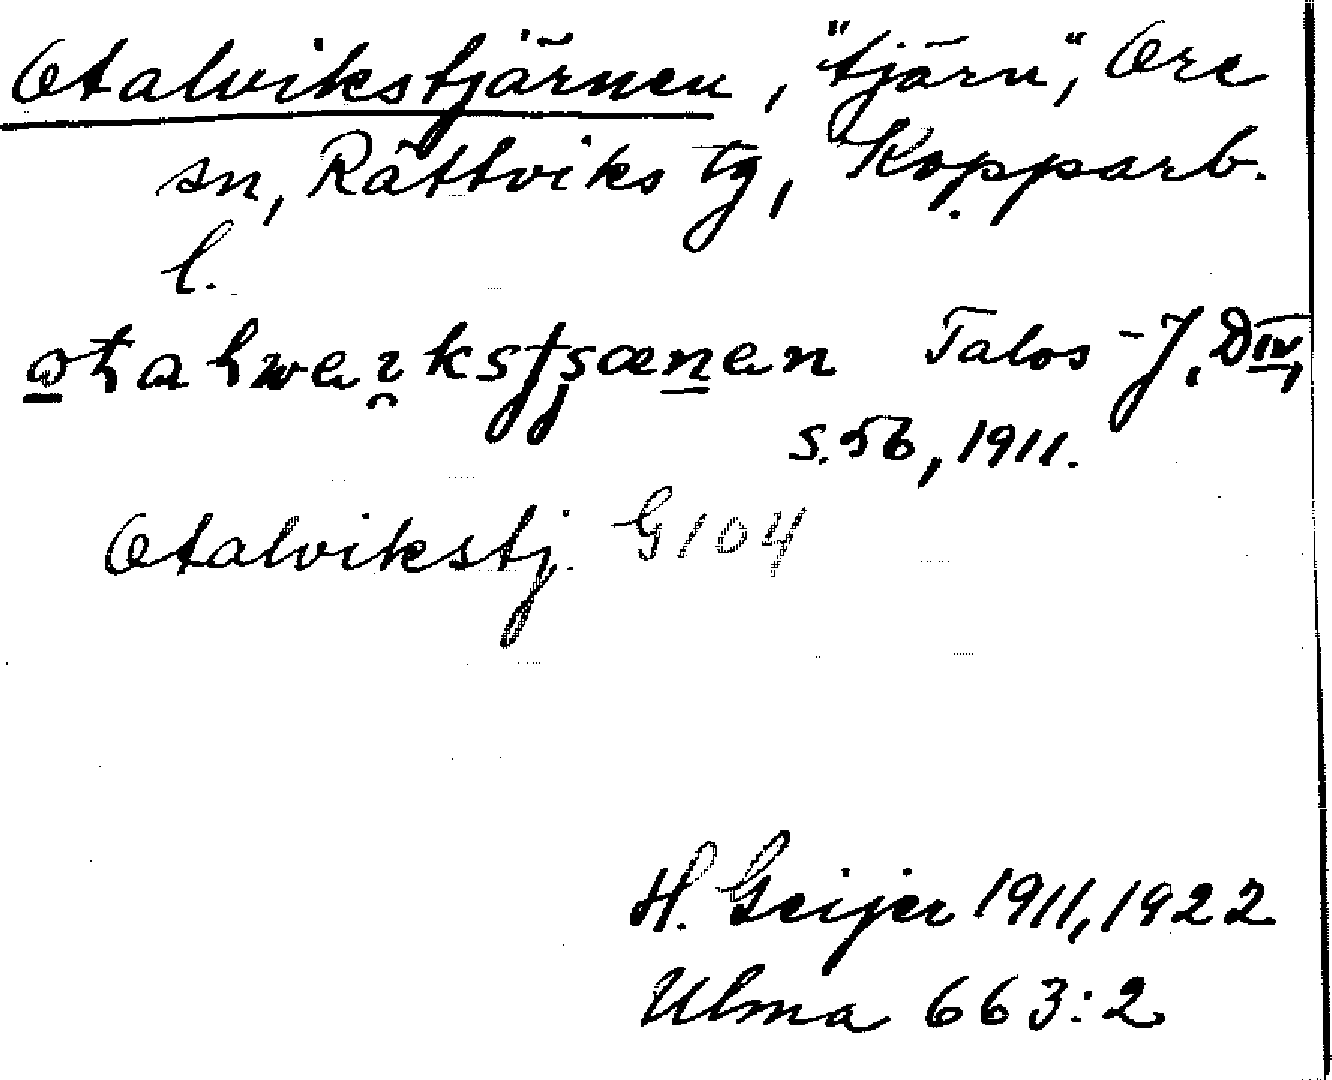 Otalvikstjärnen, "tjärn", Ore
sn, Rättviks tg, Kopparb.
l.
Talos-J. DIV,
s. 56, 1911.
Otalvikstj. G104
H. Geijer 1911, 1922
Ulma 663:2